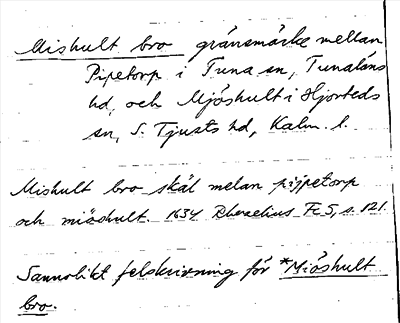 Mishult bro gränsmärke mellan
Pipetorp i Tuna sn, Tunaläns
hd, och Mjöshult i Hjorteds
sn, S. Tjusts hd, Kalm. l.
Mishult bro skäl melan pijpetorp
och miöshult. 1634 Rhezelius Fc5, s. 121.
Sannolikt felskrivning för *Miöshult
bro.